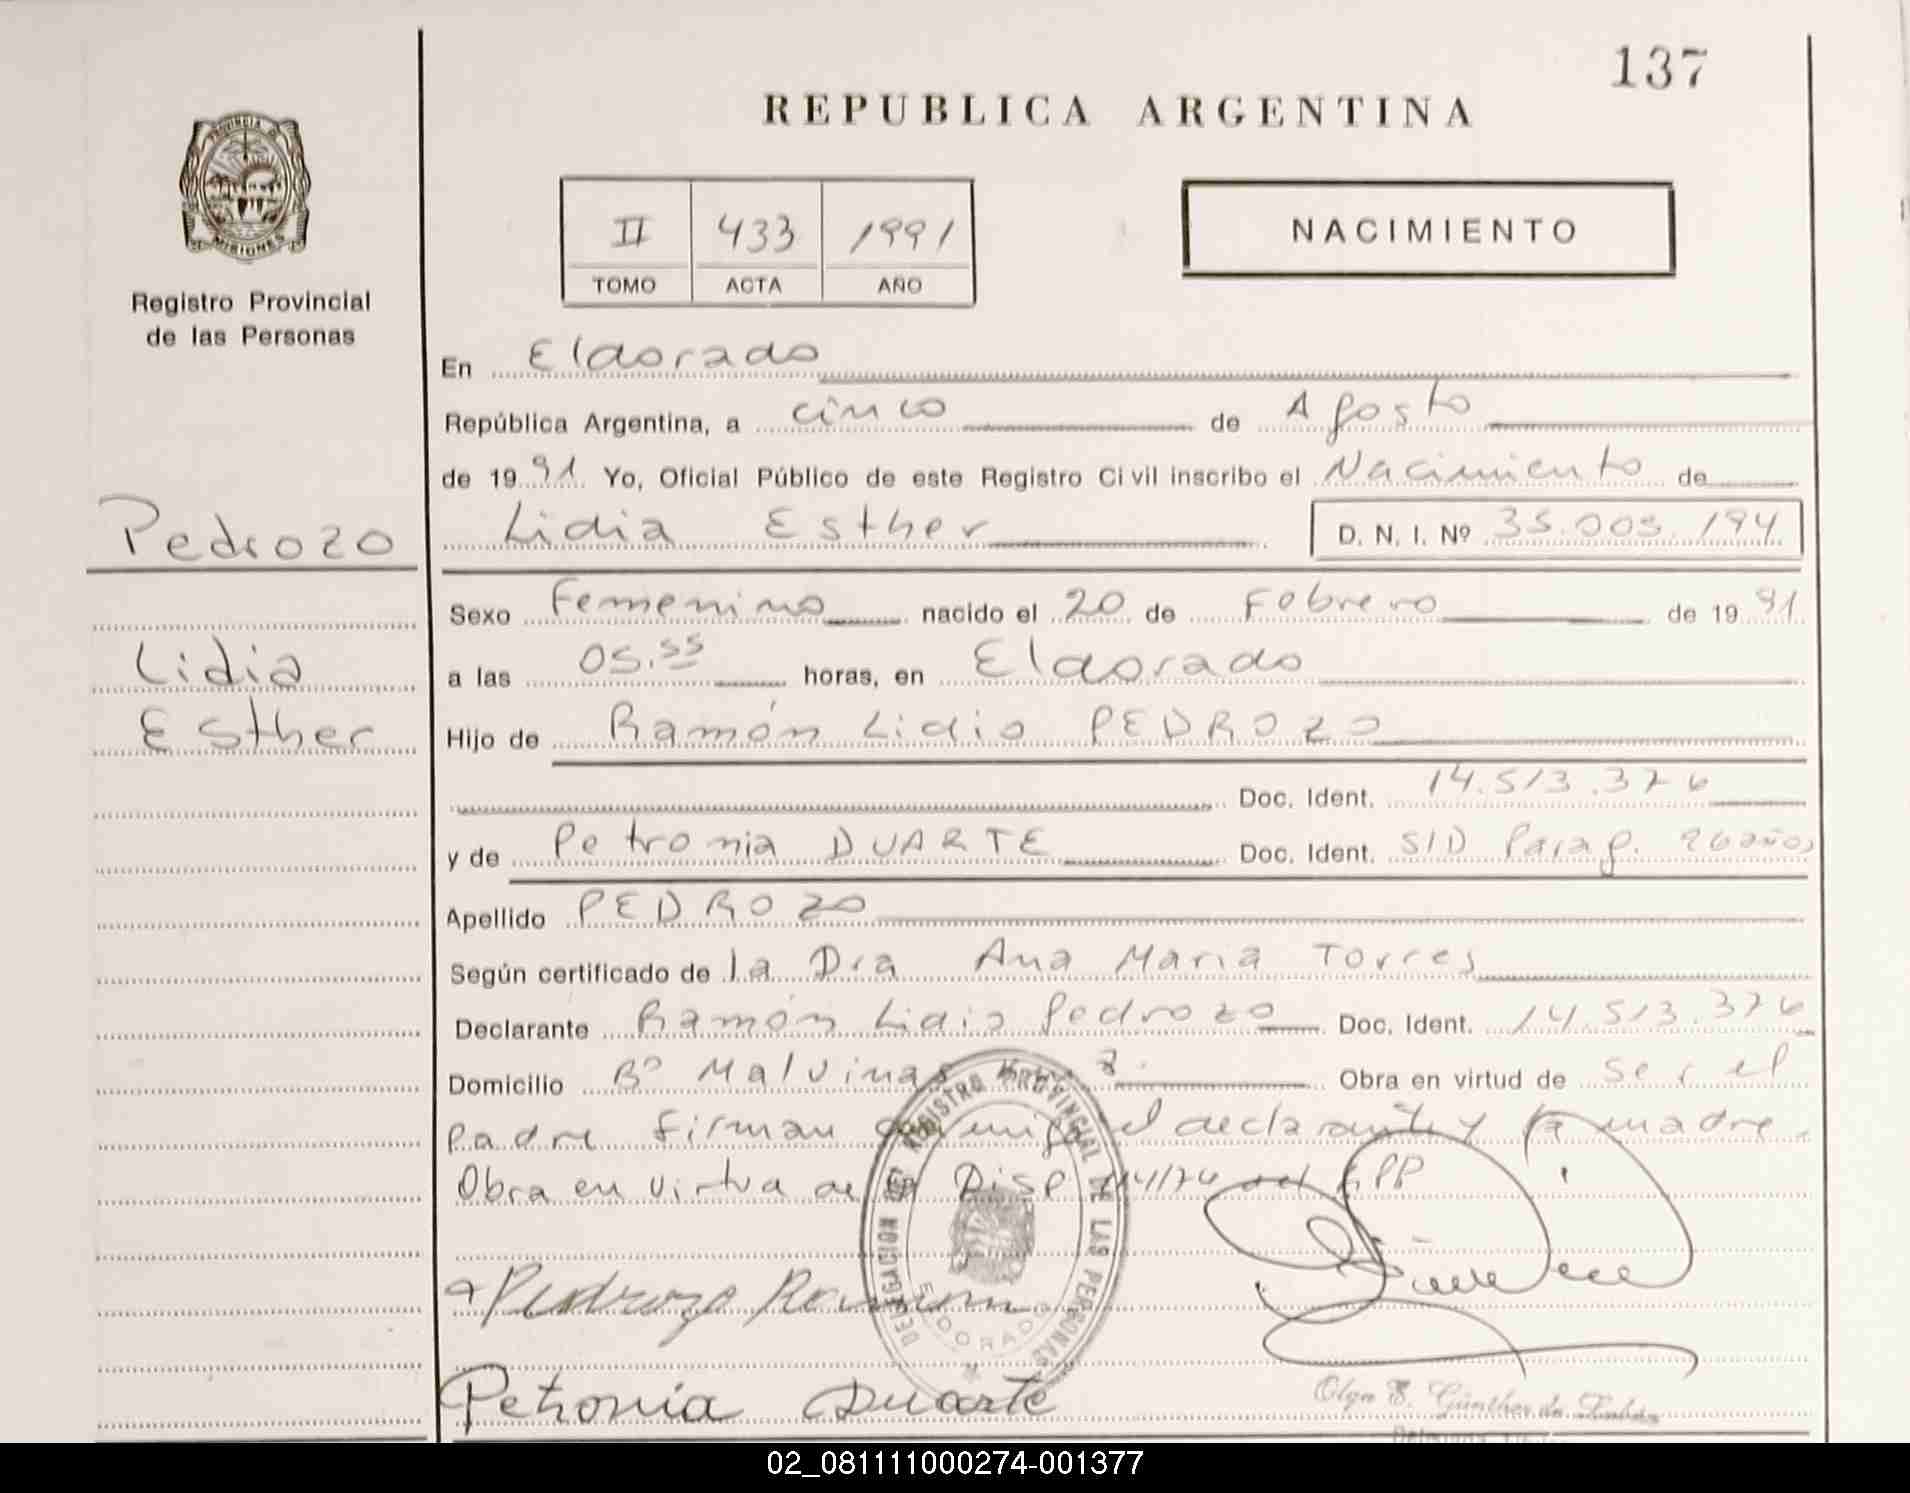 137
REPUBLICA ARGENTINA
PROVINCIA DE
MISIONES
Registro Provincial
de las Personas
II 433 1991
TOMO ACTA AÑO
NACIMIENTO
En Eldorado
República Argentina, a cinco de Agosto
de 1991 Yo, Oficial Público de este Registro Civil inscribo el Nacimiento de
Pedrozo
Lidia Esther D. N. I. Nº 35.005.194
Sexo Femenino nacido el 20 de Febrero de 1991
Lidia
a las 05.55 horas, en Eldorado
Esther
Hijo de Ramón Lidio PEDROZO
Doc. Ident. 14.513.376
y de Petronia DUARTE Doc. Ident. S/D Parag. 26 años
Apellido PEDROZO
Según certificado de la Dra Ana Maria Torres
Declarante Ramón Lidio Pedrozo Doc. Ident. 14.513.376
Domicilio Bº Malvinas Obra en virtud de ser el
padre firman el declarante y la madre.
Obra en virtud de la Disp 114/74 del RPP
DELEGACION DEL REGISTRO PROVINCIAL DE LAS PERSONAS
ELDORADO
Pedrozo Ramon
Petronia Duarte
Olga E. Günther de
02_081111000274-001377